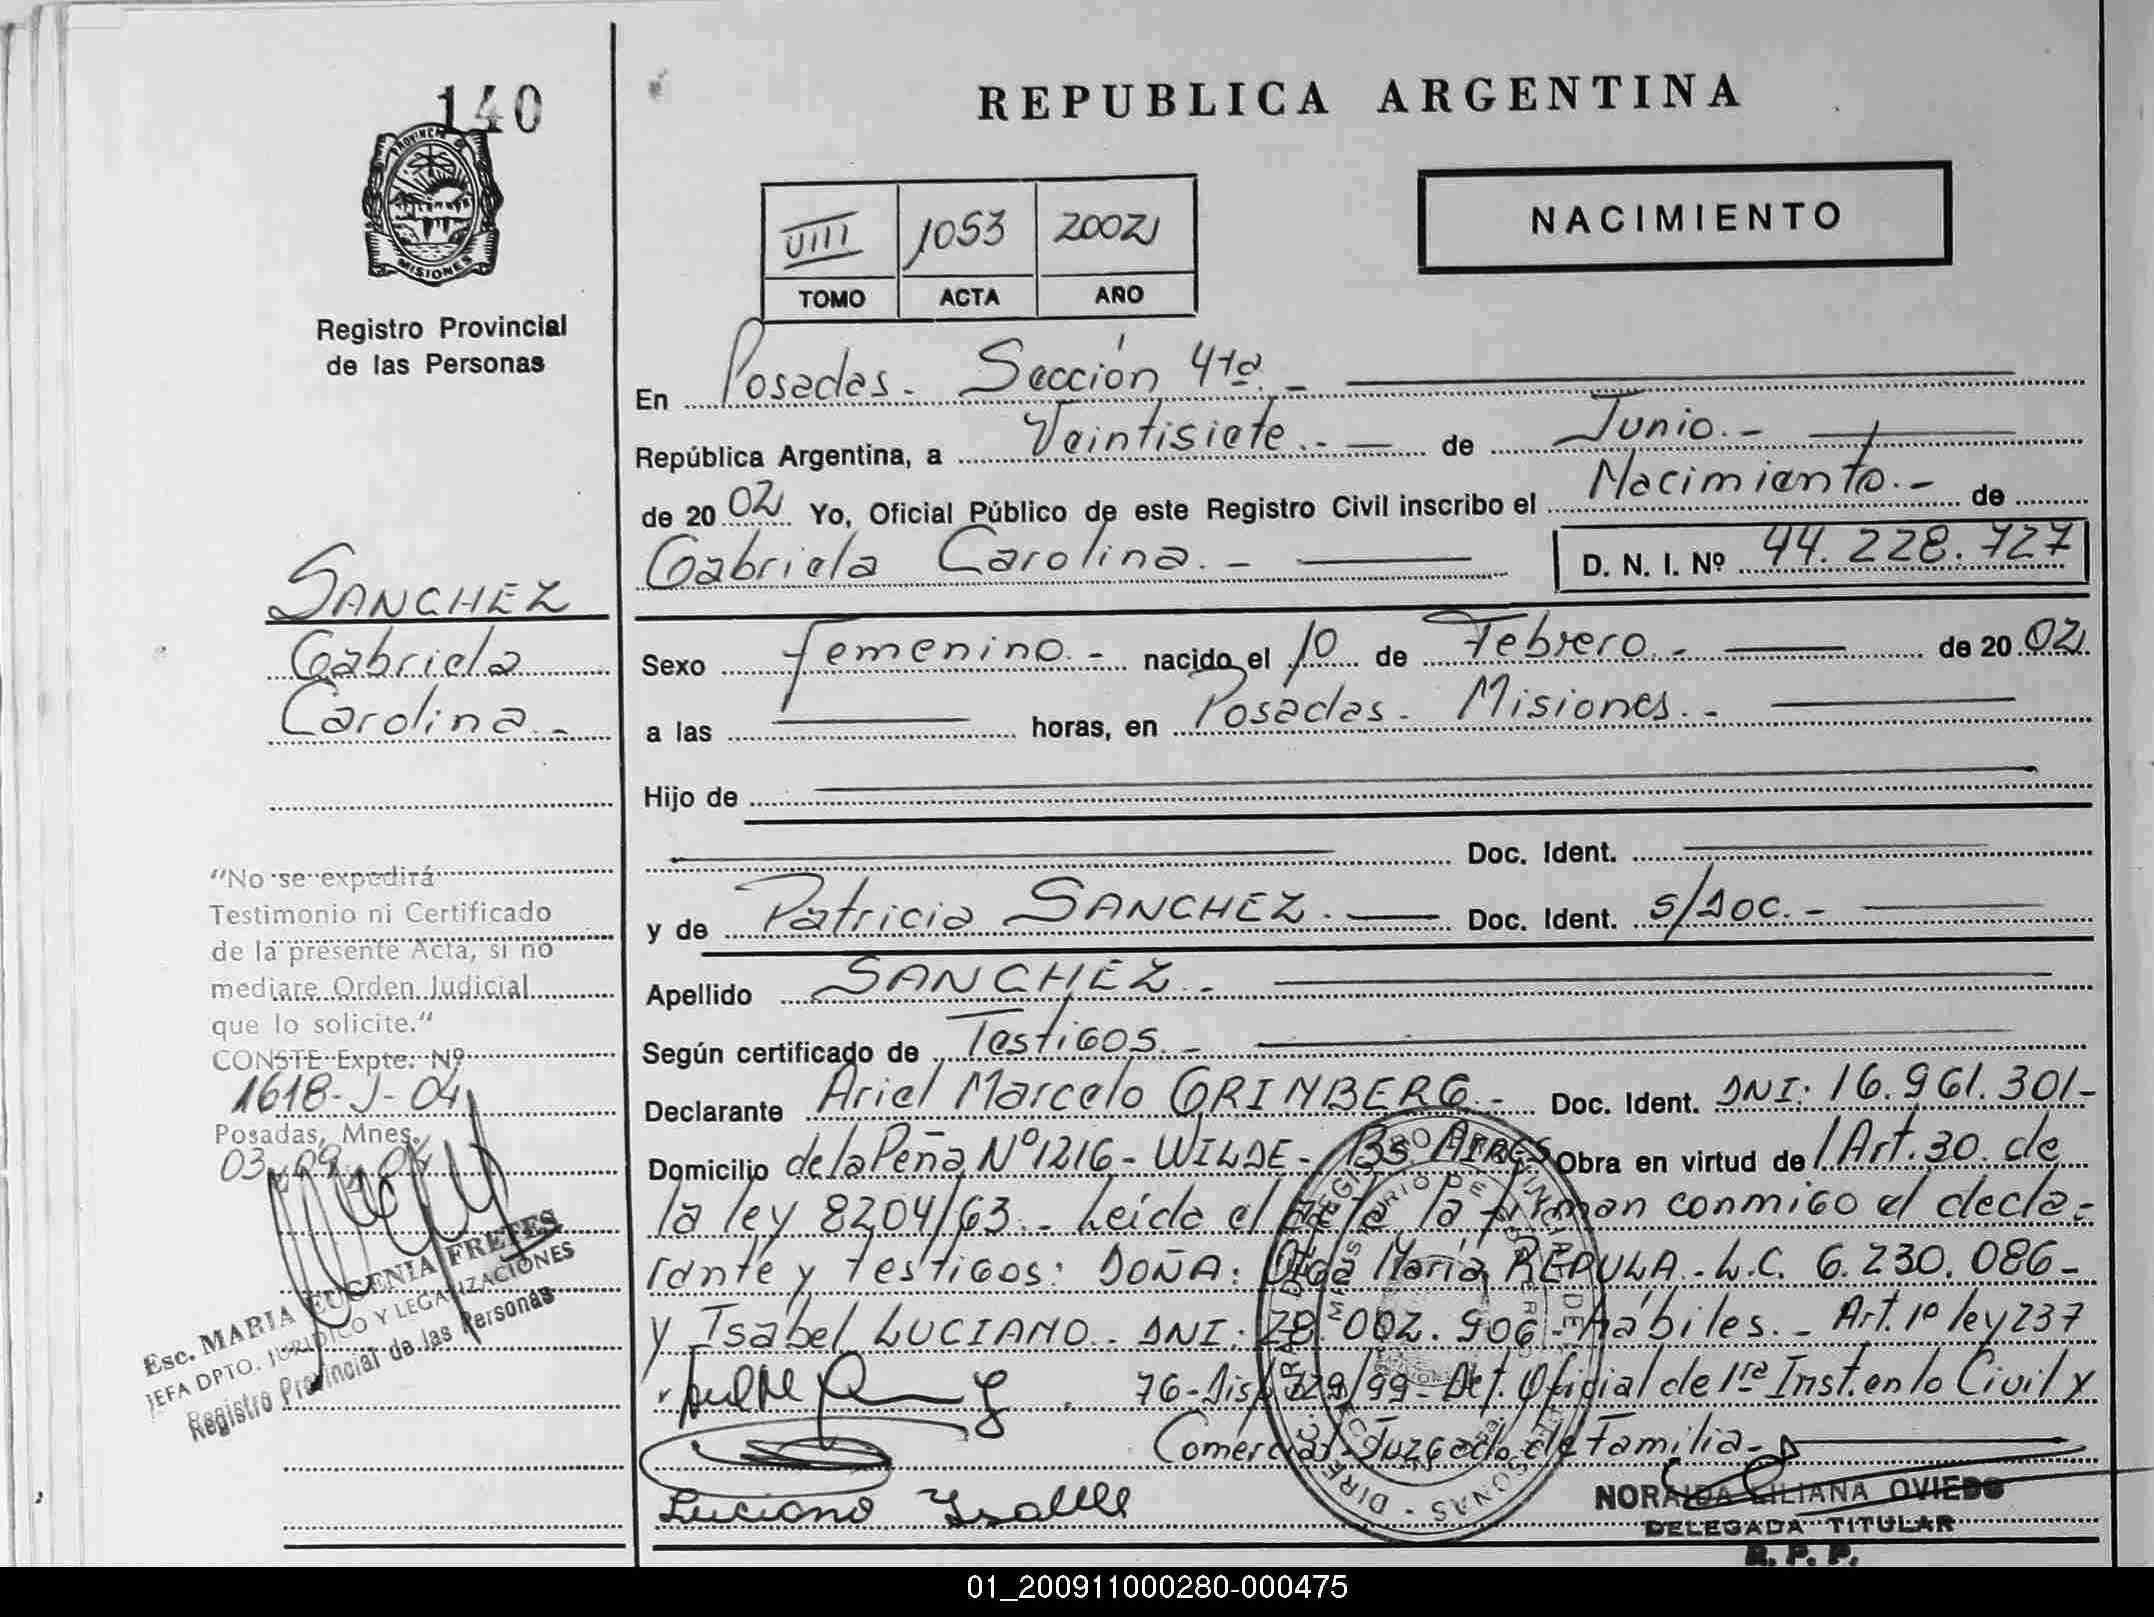 140
PROVINCIA DE
MISIONES
Registro Provincial
de las Personas
REPUBLICA ARGENTINA
VIII 1053 2002
TOMO ACTA AÑO
NACIMIENTO
En Posadas - Sección 4ta. -
República Argentina, a Veintisiete. - de Junio. -
de 20 02 Yo, Oficial Público de este Registro Civil inscribo el Nacimiento. - de
Gabriela Carolina. - D. N. I. Nº 44.228.727
SANCHEZ
Gabriela
Carolina. -
Sexo femenino. - nacido el 10 de Febrero. - de 20 02
a las horas, en Posadas - Misiones. -
Hijo de
Doc. Ident.
y de Patricia SANCHEZ. Doc. Ident. S/Doc. -
Apellido SANCHEZ. -
Según certificado de Testigos. -
Declarante Ariel Marcelo GRINBERG. - Doc. Ident. DNI: 16.961.301-
Domicilio de la Peña Nº 1216 - WILDE - Bs AIRES Obra en virtud del Art. 30 de
la ley 8204/63. - Leída el Acta la firman conmigo el decla-
rante y testigos: DOÑA: María REPULA. - L.C. 6.230.086-
y Isabel LUCIANO. - DNI: 28.002.906 - hábiles. - Art. 1º ley 237
76 - Disp. 329/99 - Def. Oficial de 1ra Inst. en lo Civil y
Comercial - Juzgado de Familia -
Luciano Isabel
NORAIDA LILIANA OVIEDO
DELEGADA TITULAR
R. P. P.
"No se expedirá
Testimonio ni Certificado
de la presente Acta, si no
mediare Orden Judicial
que lo solicite."
CONSTE Expte. Nº
1618-J-04
Posadas, Mnes.
03 09 04
Esc. MARIA EUGENIA FRETES
JEFA DPTO. JURIDICO Y LEGALIZACIONES
Registro Provincial de las Personas
01_200911000280-000475